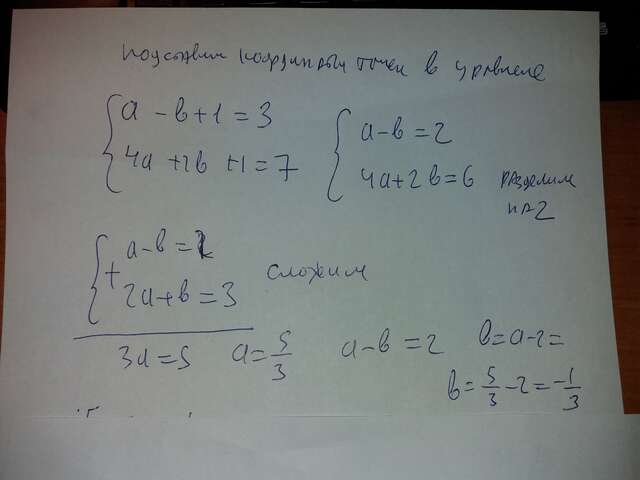 подставим координаты точек в уравнение
{ a - b + 1 = 3
{ 4a + 2b + 1 = 7
{ a - b = 2
{ 4a + 2b = 6 разделим на 2
{ a - b = 2
+
{ 2a + b = 3 сложим
3a = 5 a = 5/3 a - b = 2 b = a - 2 =
b = 5/3 - 2 = -1/3